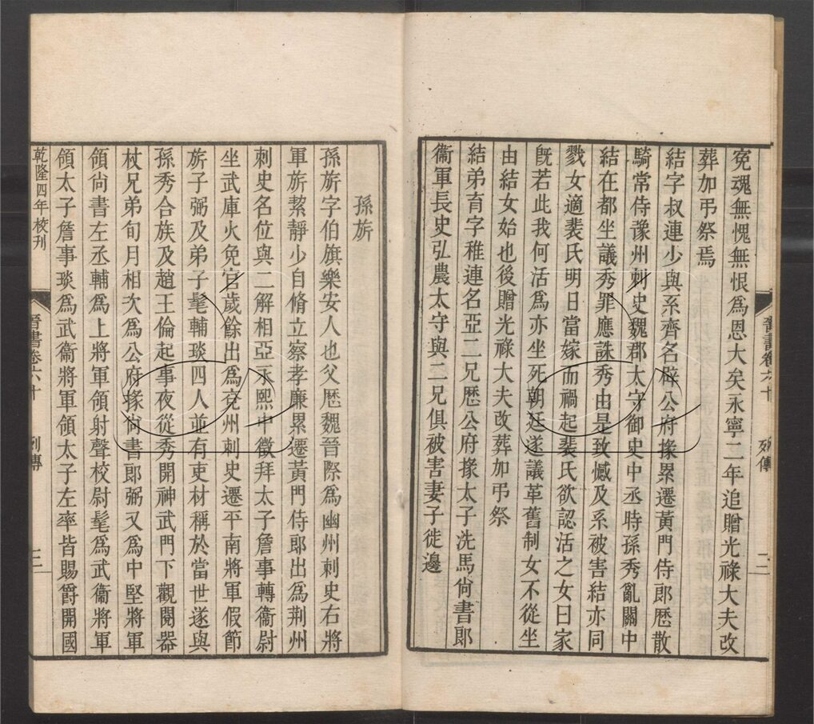 冤魂無愧無恨為恩大矣永寧二年追贈光祿大夫改
葬加弔祭焉
結字叔連少與系齊名辟公府掾累遷黃門侍郎歷散
騎常侍豫州刺史魏郡太守御史中丞時孫秀亂關中
結在都坐議秀罪應誅秀由是致憾及系被害結亦同
戮女適裴氏明日當嫁而禍起裴氏欲認活之女曰家
旣若此我何活為亦坐死朝廷遂議革舊制女不從坐
由結女始也後贈光祿大夫改葬加弔祭
結弟育字稚連名亞二兄歷公府掾太子洗馬尙書郎
衞軍長史弘農太守與二兄俱被害妻子徙邊
晉書卷六十
列傳
二
孫旂
孫旂字伯旗樂安人也父歷魏晉際為幽州刺史右將
軍旂絜靜少自脩立察孝廉累遷黃門侍郎出為荆州
刺史名位與二解相亞永熙中徵拜太子詹事轉衞尉
坐武庫火免官歲餘出為兗州刺史遷平南將軍假節
旂子弼及弟子髦輔琰四人並有吏材稱於當世遂與
孫秀合族及趙王倫起事夜從秀開神武門下觀閱器
杖兄弟旬月相次為公府掾尙書郎弼又為中堅將軍
領尙書左丞輔為上將軍領射聲校尉髦為武衞將軍
領太子詹事琰為武衞將軍領太子左率皆賜爵開國
乾隆四年校刊
晉書卷六十
列傳
三